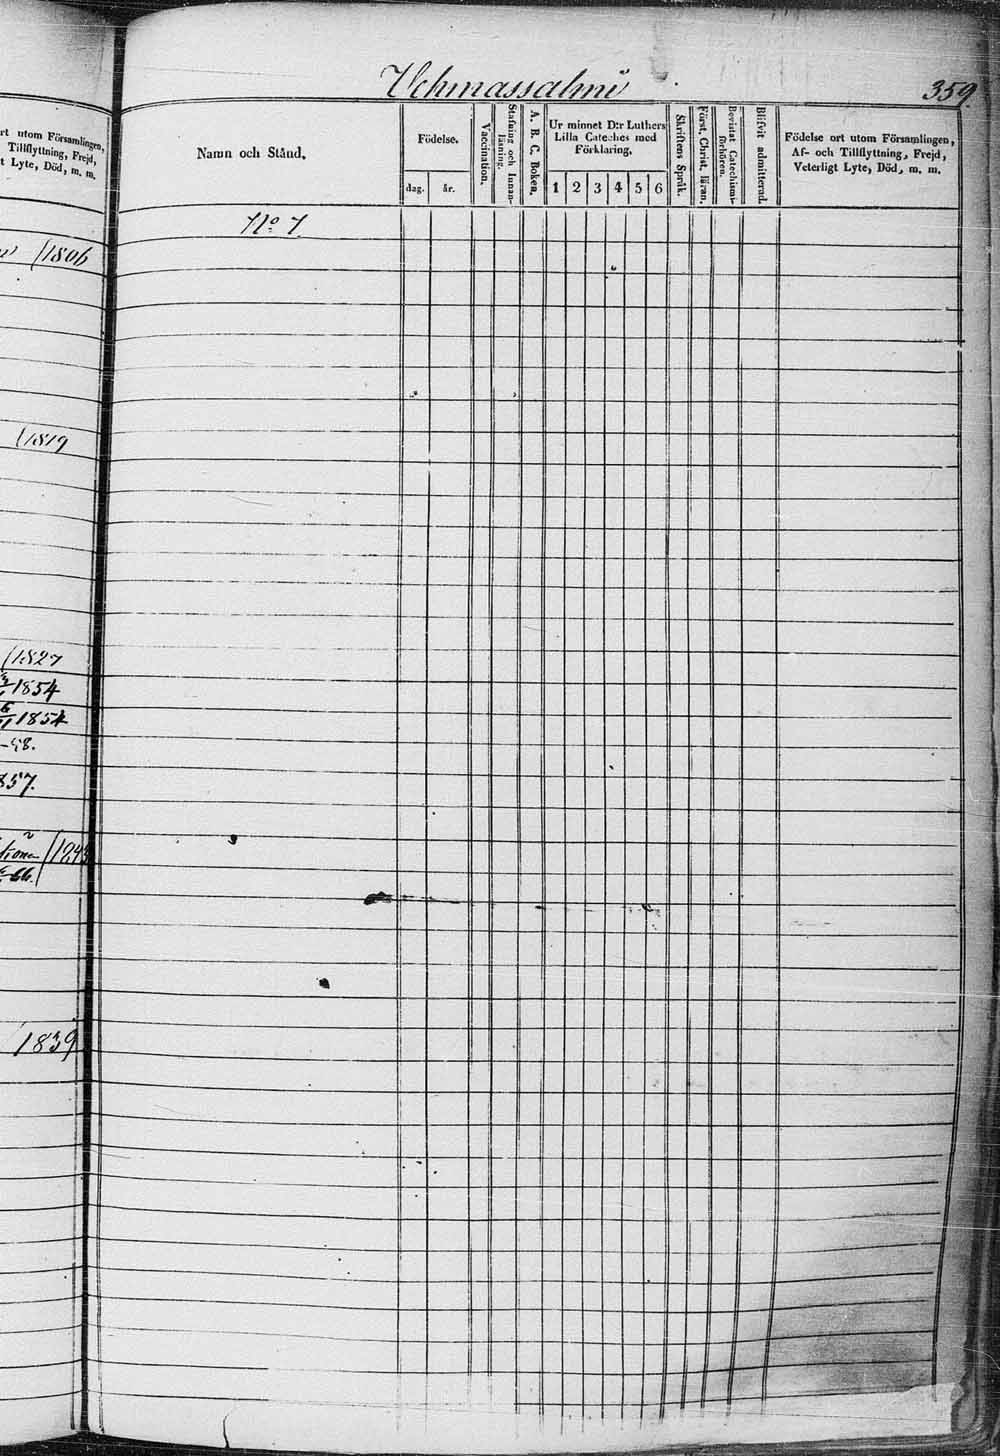 rt utom Församlingen,
Tillflyttning, Frejd,
t Lyte, Död, m. m.
1806
1819
1827
1854
1854
-58.
857.
1839
Vehmassalmi
359.
Namn och Stånd.
Födelse.
dag.
år.
Vaccination.
Stafning och Innan-
läsning.
A. B. C. Boken.
Ur minnet D:r Luthers
Lilla Cateches med
Förklaring.
1 2 3 4 5 6
Skriftens Språk.
Först. Christ. läran.
Bevistat Catechismi-
förhören.
Blifvit admitterad.
Födelse ort utom Församlingen,
Af- och Tillflyttning, Frejd,
Veterligt Lyte, Död, m. m.
No 7